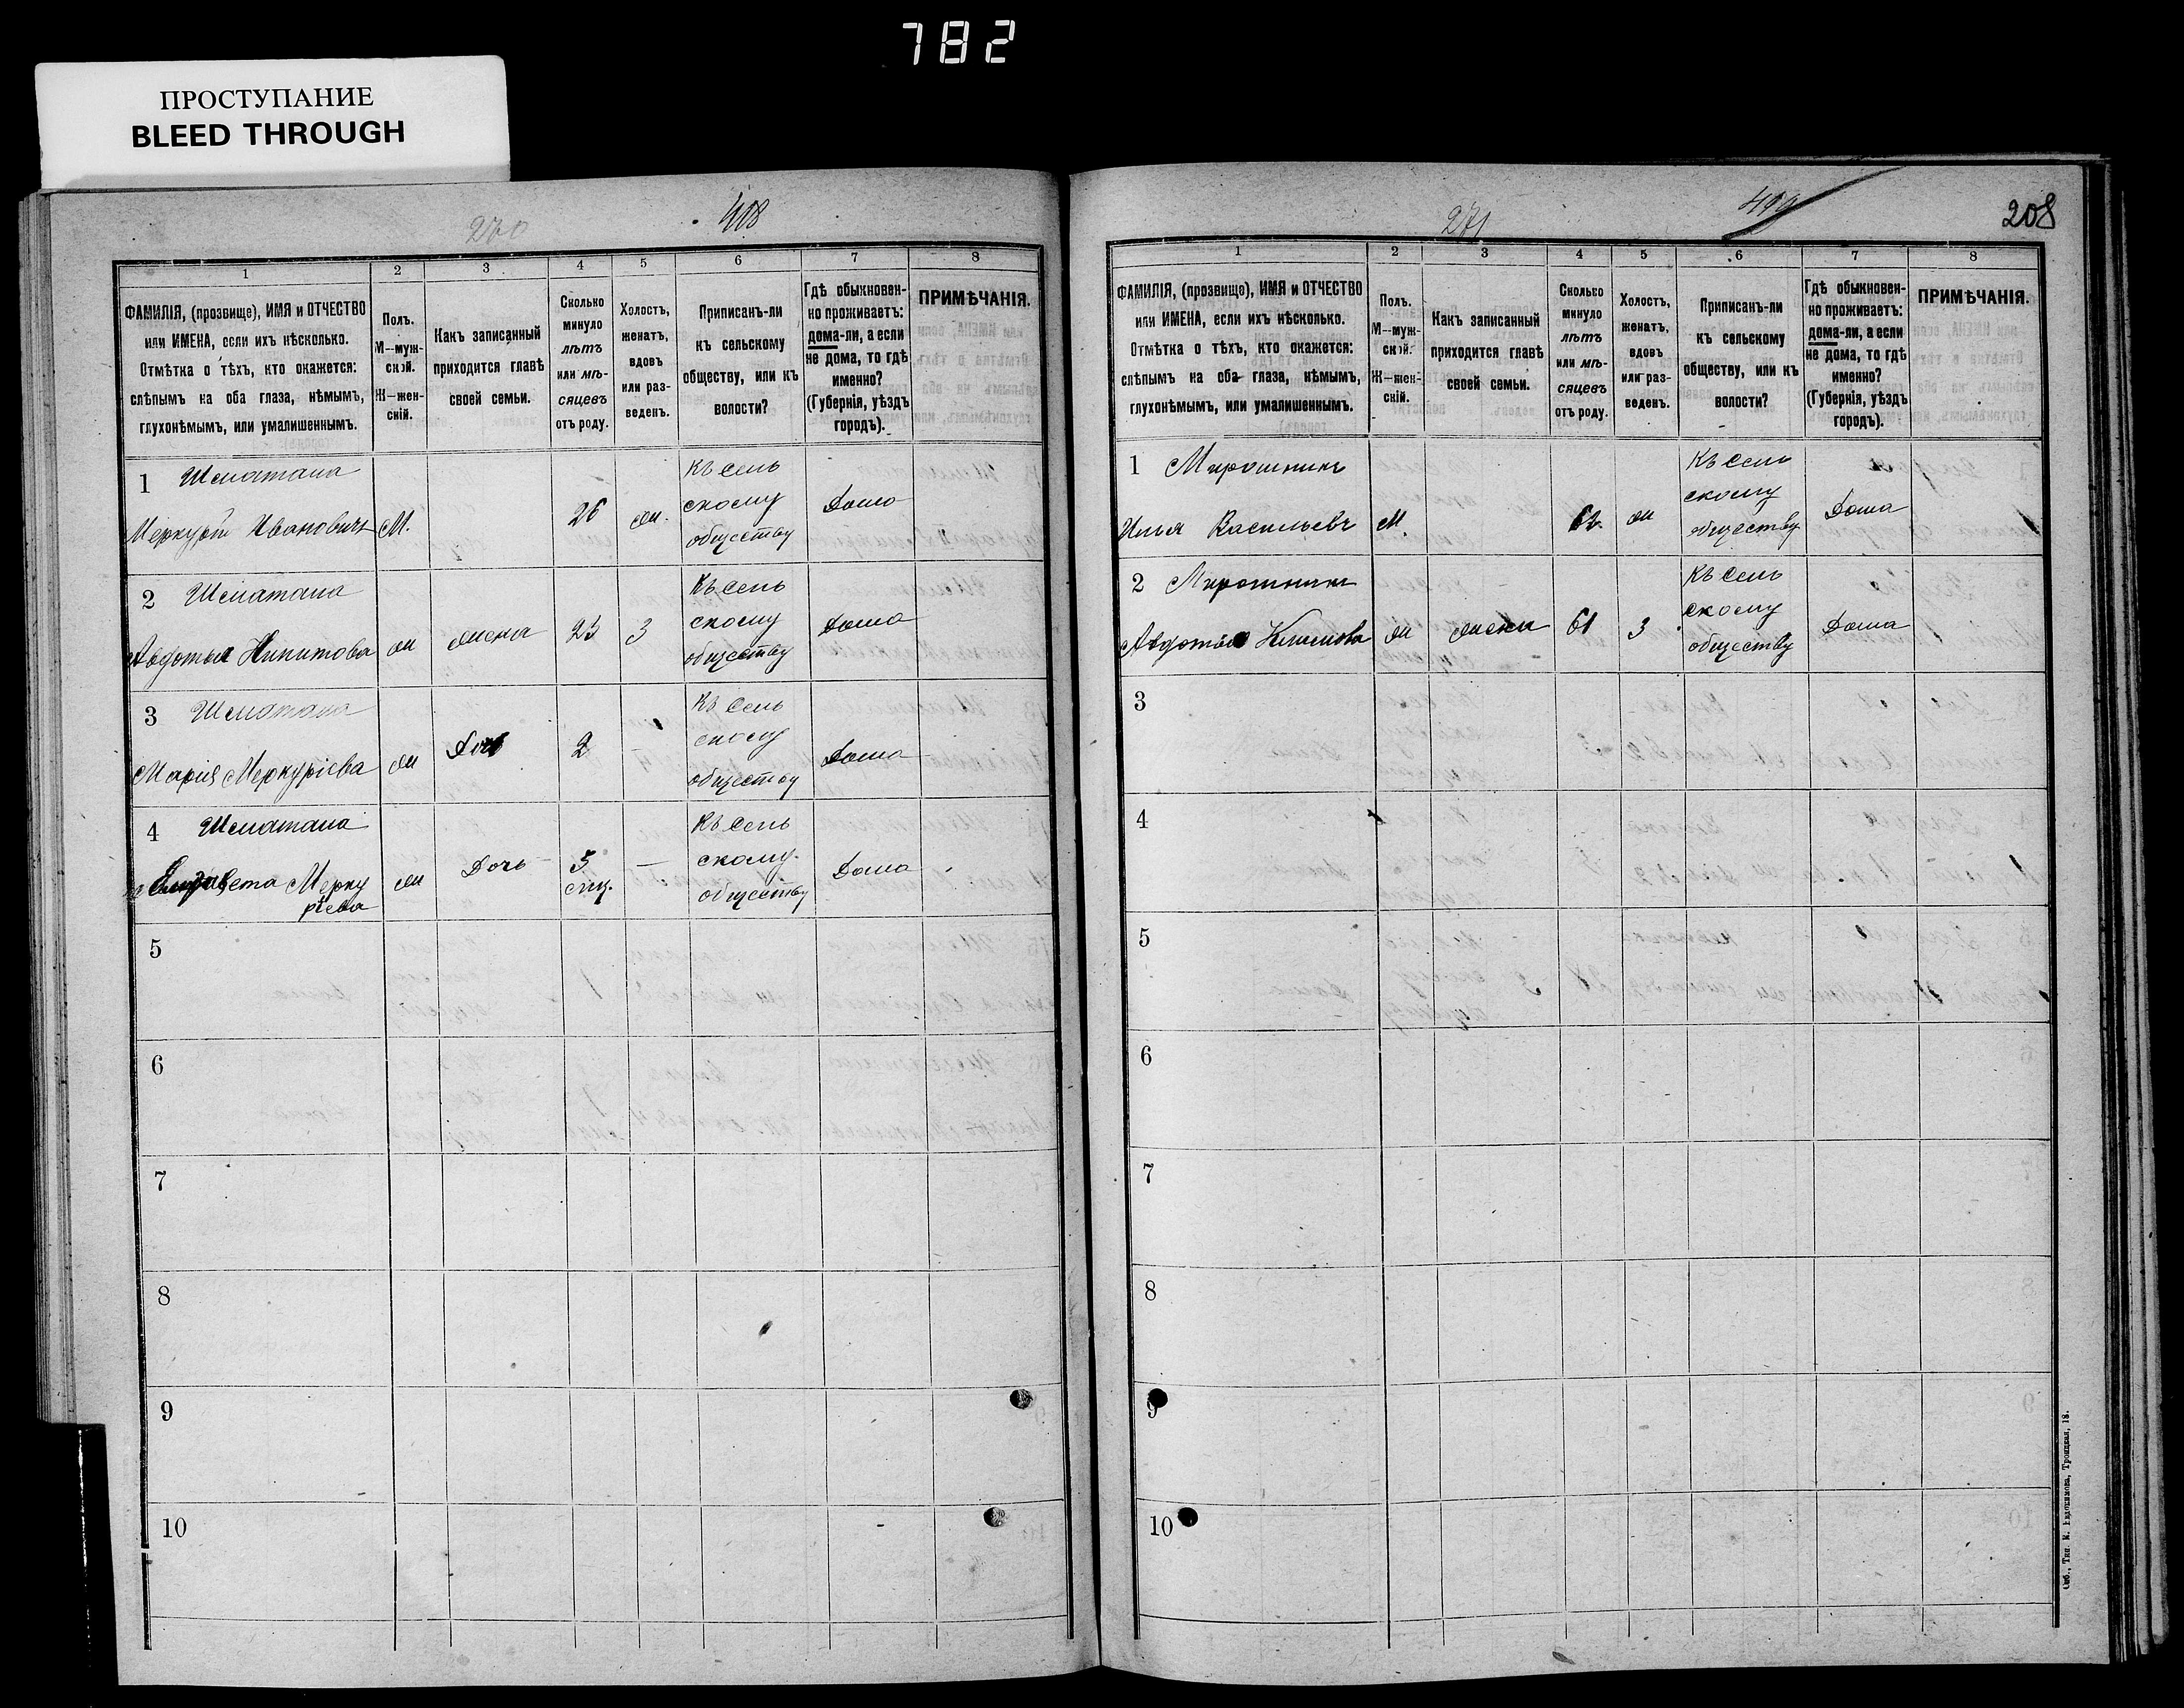 782
ПРОСТУПАНИЕ
BLEED THROUGH
270
418
1 2 3 4 5 6 7 8
ФАМИЛІЯ, (прозвище), ИМЯ и ОТЧЕСТВО
или ИМЕНА, если ихъ нѣсколько.
Отмѣтка о тѣхъ, кто окажется:
слѣпымъ на оба глаза, нѣмымъ,
глухонѣмымъ, или умалишеннымъ.
Полъ.
М—муж-
ской.
Ж—жен-
скій.
Какъ записанный
приходится главѣ
своей семьи.
Сколько
минуло
лѣтъ
или мѣ-
сяцевъ
отъ роду.
Холостъ,
женатъ,
вдовъ
или раз-
веденъ.
Приписанъ-ли
къ сельскому
обществу, или къ
волости?
Гдѣ обыкновен-
но проживаетъ:
дома-ли, а если
не дома, то гдѣ
именно?
(Губернія, уѣздъ
городъ).
ПРИМѢЧАНІЯ.
1
Меркурій Ивановичъ М. 26 ж. Къ сель
скому
обществу Дома
2
Авдотья Никитова ж жена 23 з Къ сель
скому
обществу Дома
3
Марія Меркуріева ж Дочь 2 — Къ сель
скому
обществу Дома
4
Елизавета Мерку
ріева ж Дочь 5
мц. — Къ сель
скому
обществу Дома
5
6
7
8
9
10
271
419
208
1 2 3 4 5 6 7 8
ФАМИЛІЯ, (прозвище), ИМЯ и ОТЧЕСТВО
или ИМЕНА, если ихъ нѣсколько.
Отмѣтка о тѣхъ, кто окажется:
слѣпымъ на оба глаза, нѣмымъ,
глухонѣмымъ, или умалишеннымъ.
Полъ.
М—муж-
ской.
Ж—жен-
скій.
Какъ записанный
приходится главѣ
своей семьи.
Сколько
минуло
лѣтъ
или мѣ-
сяцевъ
отъ роду.
Холостъ,
женатъ,
вдовъ
или раз-
веденъ.
Приписанъ-ли
къ сельскому
обществу, или къ
волости?
Гдѣ обыкновен-
но проживаетъ:
дома-ли, а если
не дома, то гдѣ
именно?
(Губернія, уѣздъ
городъ).
ПРИМѢЧАНІЯ.
1 Мирошникъ
Илья Васильевъ М. 62 ж Къ сель
скому
обществу Дома
2 Мирошникъ
Авдотья Климова ж жена 61 з Къ сель
скому
обществу Дома
3
4
5
6
7
8
9
10
Спб., Тип. М. Евдокимова, Троицкая, 18.